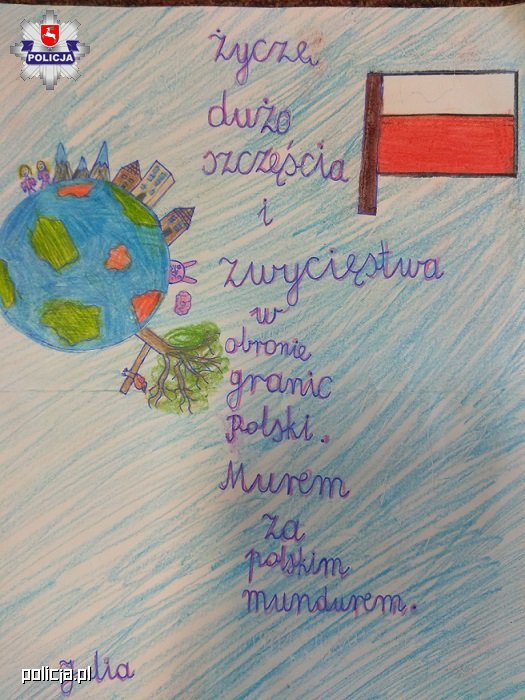 POLICJA
życzę
dużo
szczęścia
i
zwycięstwa
w
obronie
granic
Polski.
Murem
za
polskim
mundurem.
Julia
policja.pl